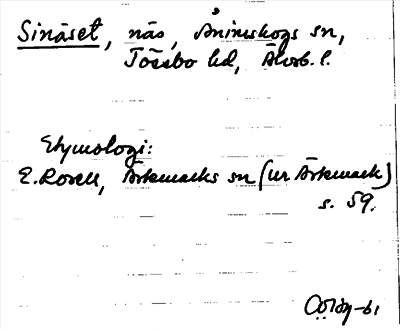 Sinäset, näs, Ånimskogs sn,
Tössbo hd, Älvsb. l.
Etymologi:
E. Rosell, Ärtemarks sn (ur Ärtemark)
s. 59.
-61